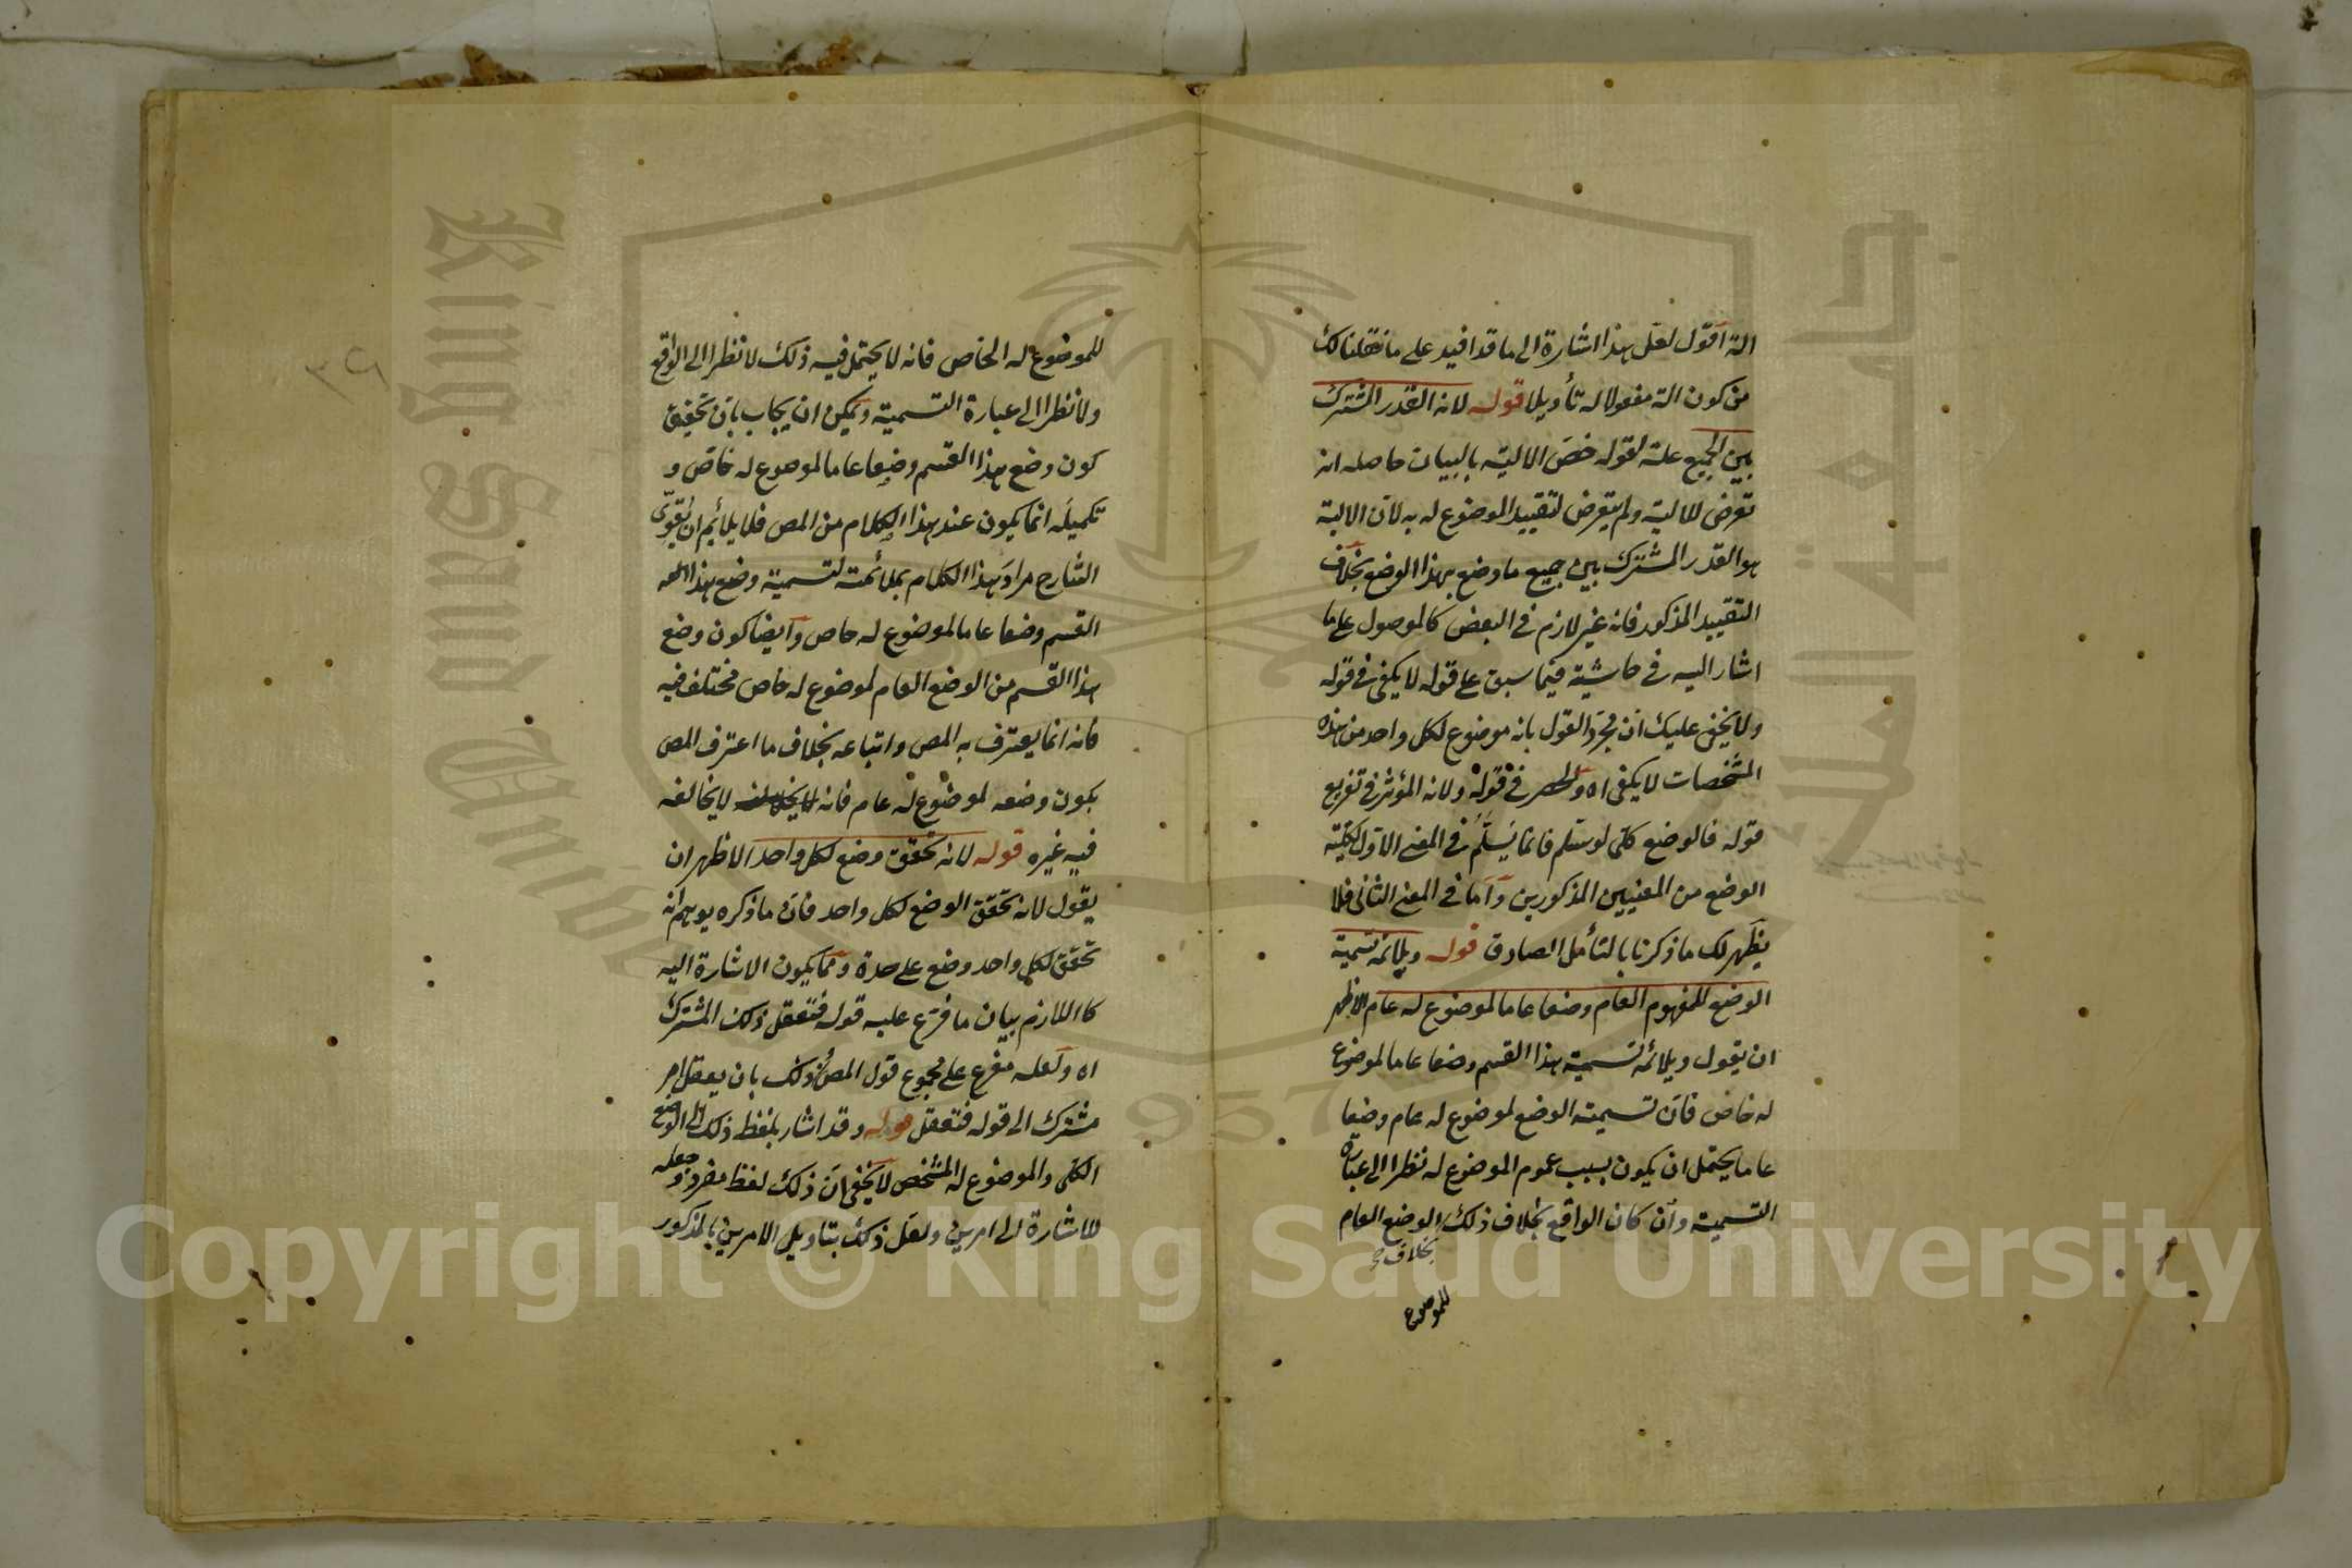 الة اقول لعل هذا اشارة الى ما قد افيد على ما نقلنا لك
من كون الة مفعولا له تأويلا قوله لانه القدر المشترك
بين الجميع علة لقوله خص الالية بالبيان حاصله انه
تعرض للالية ولم يتعرض لتقييد الموضوع له به لان الالية
هو القدر المشترك بين جميع ما وضع بهذا الوضع بخلاف
التقييد المذكور فانه غير لازم في البعض كالموصول على ما
اشار اليه في حاشية فيما سبق على قوله لا يكفى في قوله
ولا يخفى عليك ان مجرد القول بانه موضوع لكل واحد من هذه
المشخصات لا يكفى اه والحصر في قوله ولانه المؤثر في تفريع
قوله فالوضع كلى لو سلم فانما يسلم في المعنى الاول لكلية
الوضع من المعنيين المذكورين واما في المعنى الثانى فلا
يظهر لك ما ذكرنا بالتأمل الصادق قوله ويلائمه تسمية
الوضع للمفهوم العام وضعا عاما لموضوع له عام الاظهر
ان يقول ويلائمه تسمية هذا القسم وضعا عاما لموضوع
له خاص فان تسمية الوضع لموضوع له عام وضعا
عاما يحتمل ان يكون بسبب عموم الموضوع له نظرا الى عبارة
التسمية وان كان الواقع بخلاف ذلك الوضع العام
بخلاف
للموضوع
للموضوع له الخاص فانه لا يحتمل فيه ذلك لا نظرا الى الواقع
ولا نظرا الى عبارة التسمية ويمكن ان يجاب بان تحقيق
كون وضع هذا القسم وضعا عاما لموضوع له خاص و
تكميله انما يكون عند هذا الكلام من المص فلا يلائم ان يقوى
الشارح مراد هذا الكلام بملائمة تسمية وضع هذا
القسم وضعا عاما لموضوع له خاص وايضا كون وضع
هذا القسم من الوضع العام لموضوع له خاص مختلف فيه
فانه انما يعترف به المص واتباعه بخلاف ما اعترف المص
بكون وضعه لموضوع له عام فانه لا يخالفه
فيه غيره قوله لانه تحقق وضع لكل واحد الاظهر ان
يقول لانه تحقق الوضع لكل واحد فان ما ذكره يوهم انه
تحقق لكل واحد وضع على حدة ومما يكون الاشارة اليه
كاللازم بيان ما فرع عليه قوله فتعقل ذلك المشترك
اه ولعله مفرع على مجموع قول المص وذلك بان يعقل امر
مشترك الى قوله فتعقل قوله وقد اشار بلفظ ذلك الى الوضع
الكلى والموضوع له المشخص لا يخفى ان ذلك لفظ مفرد وجعله
للاشارة الى امرين ولعل ذلك بتاويل الامرين بالمذكور
٣٦
King Saud University
جامعة الملك
1957
Copyright © King Saud University